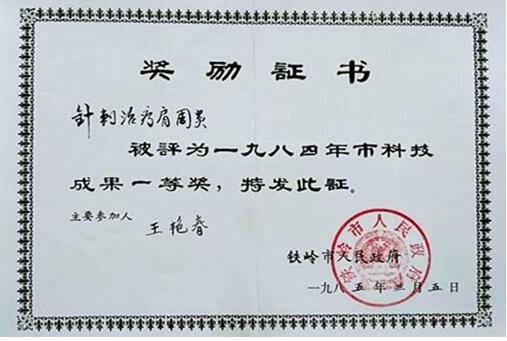 奖励証书
針刺治疗肩周炎
被評为一九八四年市科技
成果一等奖，特发此証。
主要参加人
王艳春
铁岭市人民政府
铁岭市人民政府
一九八五年三月五日